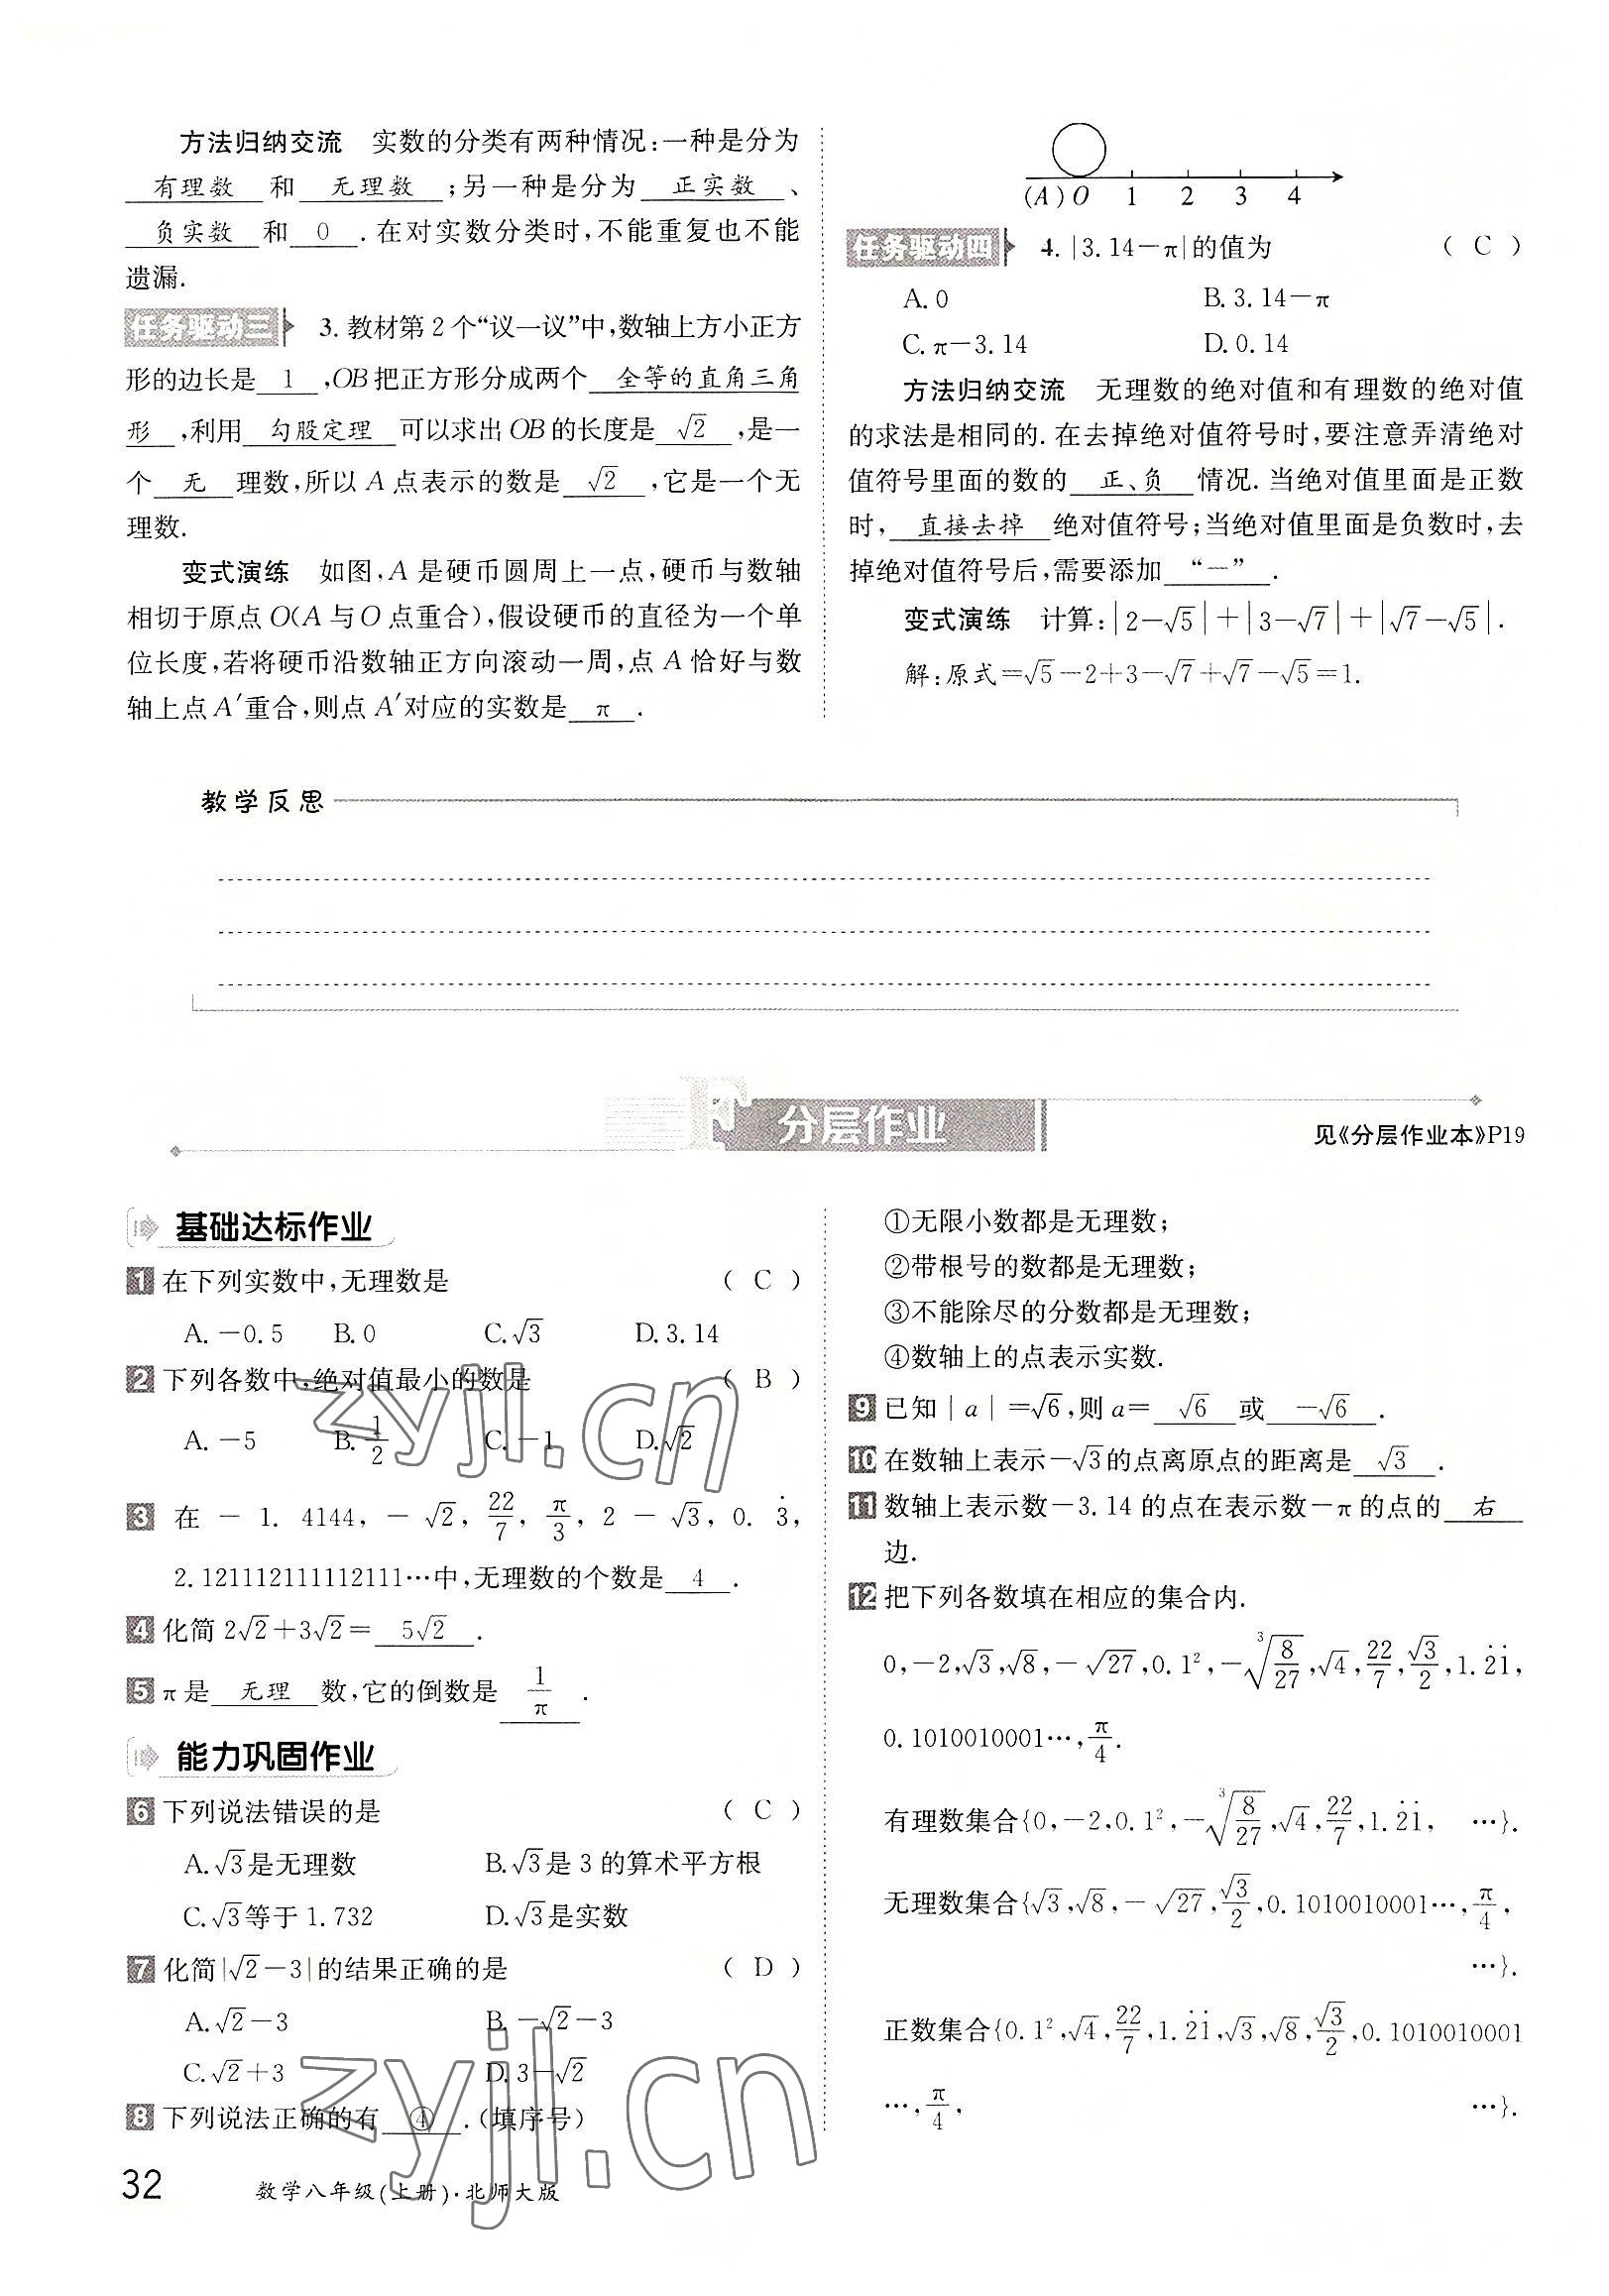 方法归纳交流　实数的分类有两种情况:一种是分为
有理数 和 无理数 ;另一种是分为 正实数 、
负实数 和 0 .在对实数分类时,不能重复也不能
遗漏.
任务驱动三 3.教材第2个“议一议”中,数轴上方小正方
形的边长是 1 ,OB把正方形分成两个 全等的直角三角
形 ,利用 勾股定理 可以求出OB的长度是 √2 ,是一
个 无 理数,所以A点表示的数是 √2 ,它是一个无
理数.
变式演练　如图,A是硬币圆周上一点,硬币与数轴
相切于原点O(A与O点重合),假设硬币的直径为一个单
位长度,若将硬币沿数轴正方向滚动一周,点A恰好与数
轴上点A′重合,则点A′对应的实数是 π .
(A) O 1 2 3 4
任务驱动四 4.|3.14－π|的值为 ( C )
A.0 B.3.14－π
C.π－3.14 D.0.14
方法归纳交流　无理数的绝对值和有理数的绝对值
的求法是相同的.在去掉绝对值符号时,要注意弄清绝对
值符号里面的数的 正、负 情况.当绝对值里面是正数
时, 直接去掉 绝对值符号;当绝对值里面是负数时,去
掉绝对值符号后,需要添加 “－” .
变式演练　计算:|2－√5|＋|3－√7|＋|√7－√5|.
解:原式＝√5－2＋3－√7＋√7－√5＝1.
教学反思
分层作业
见《分层作业本》P19
基础达标作业
1 在下列实数中,无理数是 ( C )
A.－0.5 B.0 C.√3 D.3.14
2 下列各数中,绝对值最小的数是 ( B )
A.－5 B.1/2 C.－1 D.√2
3 在－1.4144,－√2,22/7,π/3,2－√3,0.3̇,
2.121112111112111…中,无理数的个数是 4 .
4 化简2√2＋3√2＝ 5√2 .
5 π是 无理 数,它的倒数是 1/π .
能力巩固作业
6 下列说法错误的是 ( C )
A.√3是无理数 B.√3是3的算术平方根
C.√3等于1.732 D.√3是实数
7 化简|√2－3|的结果正确的是 ( D )
A.√2－3 B.－√2－3
C.√2＋3 D.3－√2
8 下列说法正确的有 ④ .(填序号)
①无限小数都是无理数;
②带根号的数都是无理数;
③不能除尽的分数都是无理数;
④数轴上的点表示实数.
9 已知|a|＝√6,则a＝ √6 或 －√6 .
10 在数轴上表示－√3的点离原点的距离是 √3 .
11 数轴上表示数－3.14的点在表示数－π的点的 右
边.
12 把下列各数填在相应的集合内.
0,－2,√3,√8,－√27,0.1²,－∛(8/27),√4,22/7,√3/2,1.2̇1̇,
0.1010010001…,π/4.
有理数集合{0,－2,0.1²,－∛(8/27),√4,22/7,1.2̇1̇, …}.
无理数集合{√3,√8,－√27,√3/2,0.1010010001…,π/4,
…}.
正数集合{0.1²,√4,22/7,1.2̇1̇,√3,√8,√3/2,0.1010010001
…,π/4, …}.
zyjl.cn
zyjl.cn
32 数学八年级(上册)·北师大版